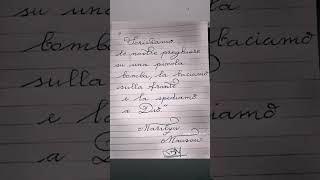 "Scriviamo
le nostre preghiere
su una piccola
bomba, la baciamo
sulla fronte
e la spediamo
a Dio"
Marilyn
Manson